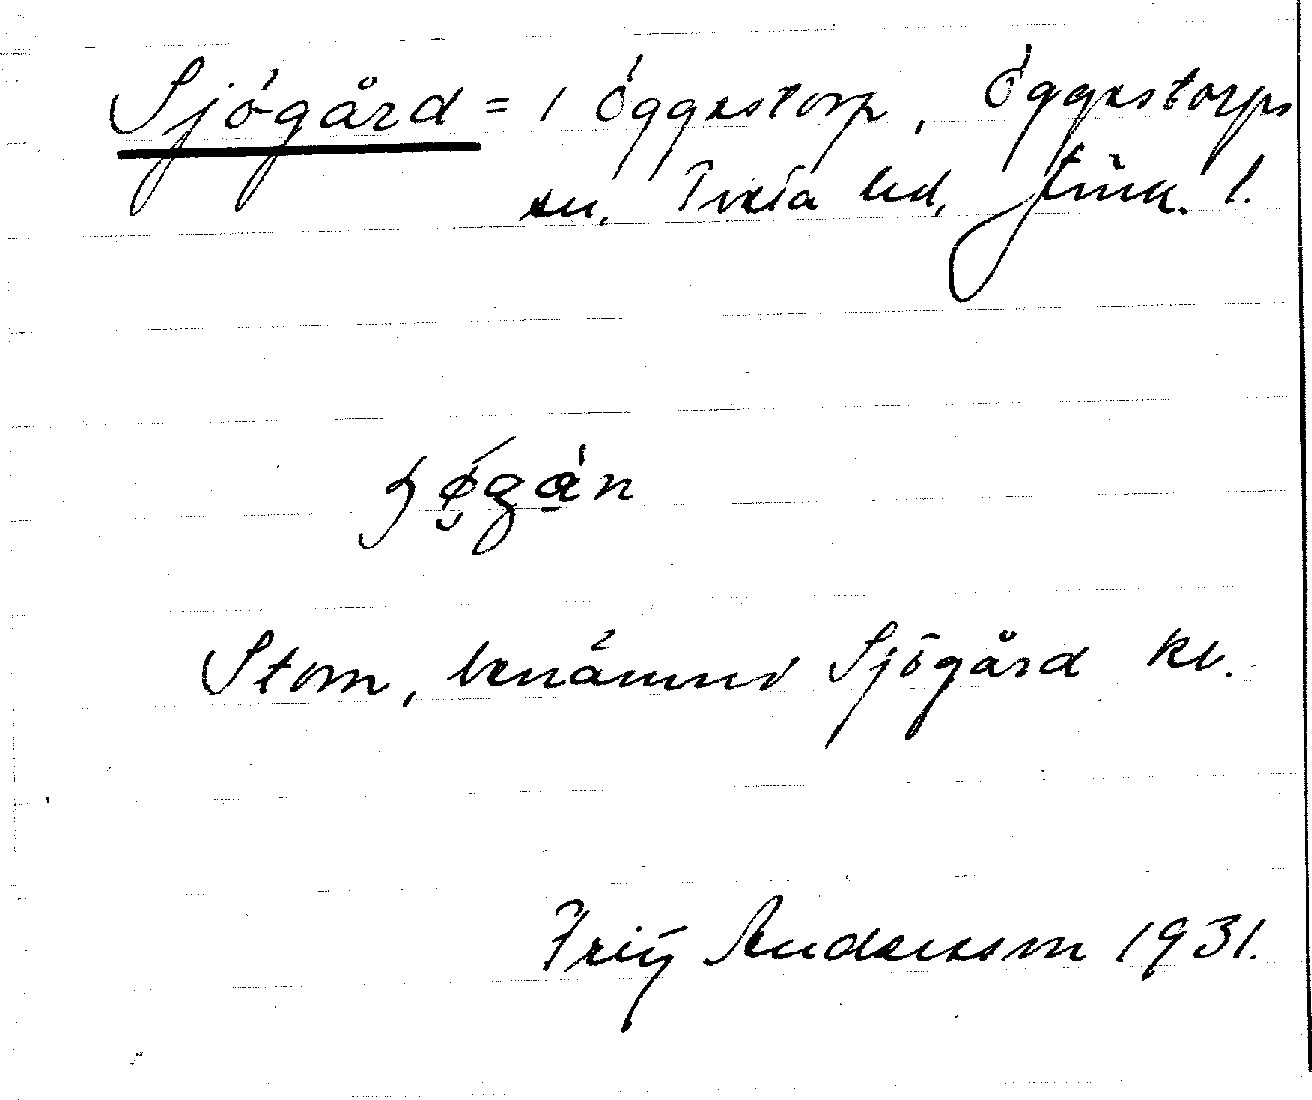 Sjögård = 1 Öggestorp, Öggestorps
sn. Tveta hd, Jönk. l.
Stom, benämnd Sjögård kv.
Andersson 1931.